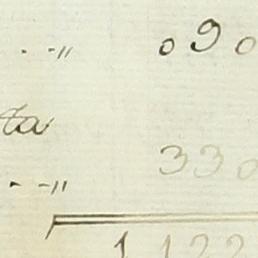 . . -„ 090
ta
. - -„ 330
1122